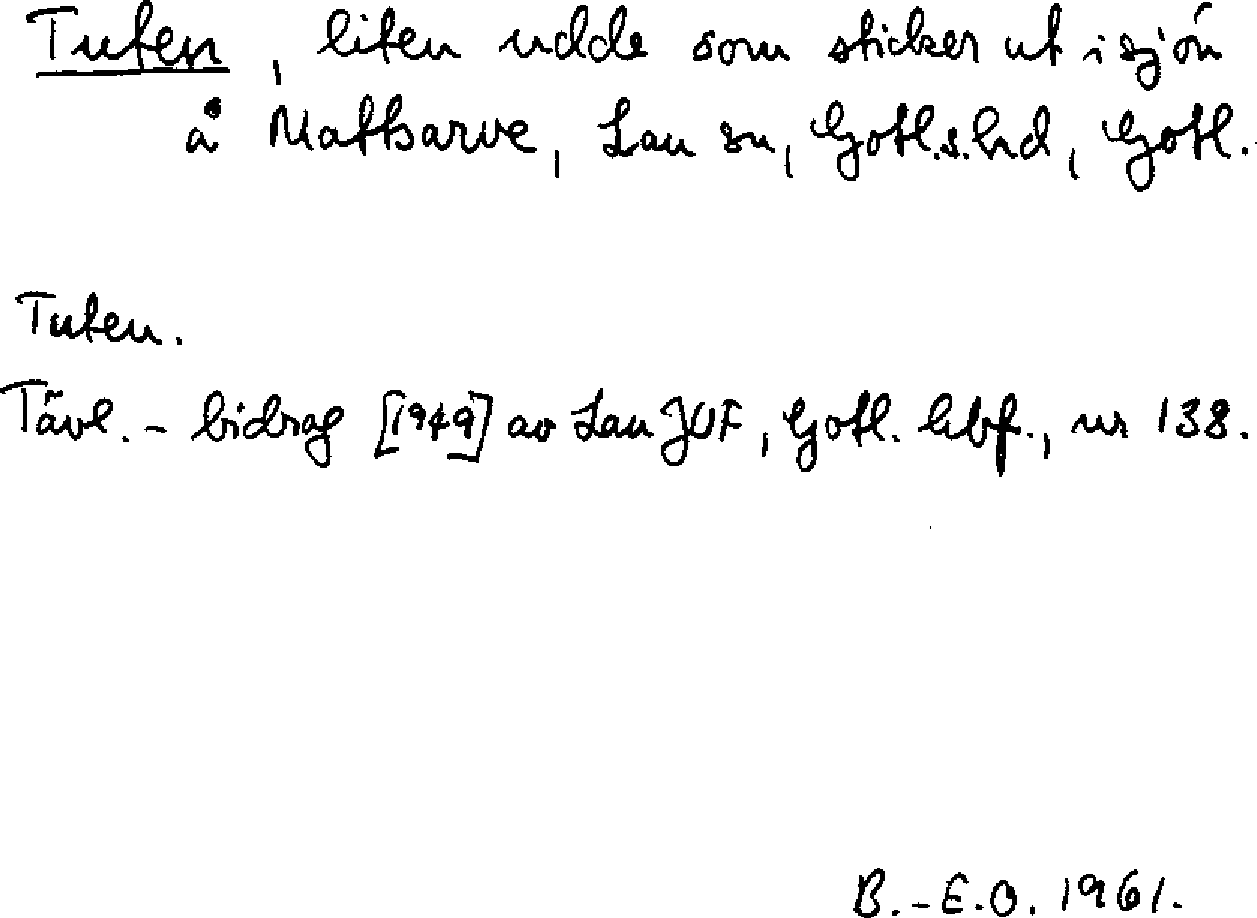 Tuten, liten udde som sticker ut i sjön
å Mattsarve, Lau sn, Gotl.s.hd, Gotl.
Tuten.
Tävl. - bidrag [1949] av Lau JUF, Gotl. hbf., nr 138.
B.-E.O. 1961.